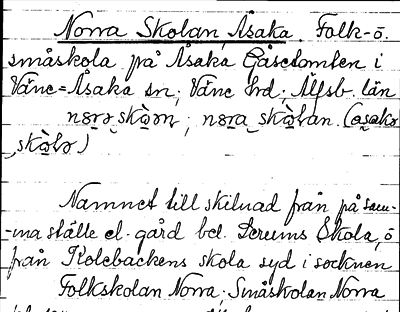 Norra Skolan Åsaka. Folk- o.
småskola på Åsaka Gåsetomten i
Väne=Åsaka sn; Väne hd; Älfsb. län
Namnet till skilnad från på sam-
-ma ställe el. gård bel. Serums Skola, o
från Kolebackens skola syd i socknen
Folkskolan Norra; Småskolan Norra